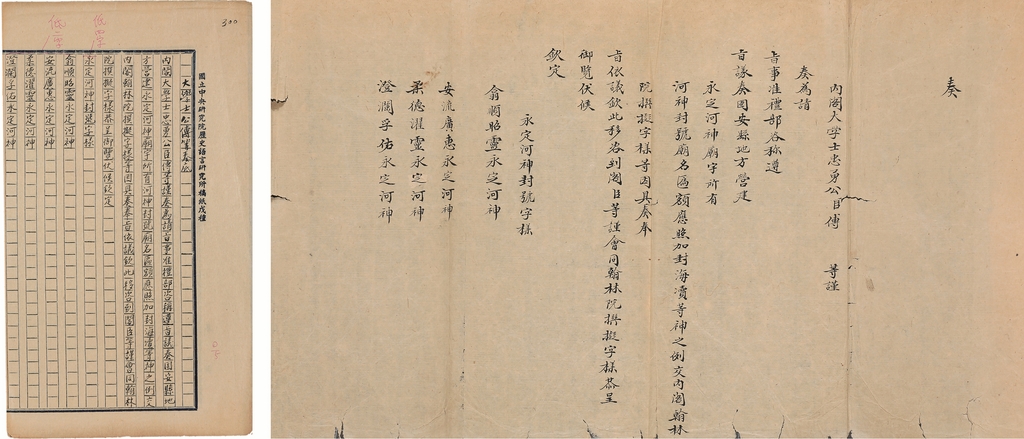 奏
內閣大學士忠勇公臣傅 等謹
奏為請
旨事准禮部咨稱遵
旨議奏固安縣地方營建
永定河神廟宇所有
河神封號廟名匾額應照加封海瀆等神之例交內閣翰林
院撰擬字樣等因具奏奉
旨依議欽此移咨到閣臣等謹會同翰林院撰擬字樣恭呈
御覽伏候
欽定
永定河神封號字樣
翕順昭靈永定河神
安流廣惠永定河神
柔德濯靈永定河神
澄瀾孚佑永定河神
300
國立中央研究院歷史語言研究所稿紙戊種
大學士公傅等奏底
內閣大學士忠勇公臣傅等謹奏為請旨事准禮部咨稱遵旨議奏固安縣地
方營建永定河神廟宇所有河神封號廟名匾額應照加封海瀆等神之例交
內閣翰林院撰擬字樣等因具奏奉旨依議欽此移咨到閣臣等謹會同翰林
院撰擬字樣恭呈御覽伏候欽定
永定河神封號字樣
翕順昭靈永定河神
安流廣惠永定河神
柔德濯靈永定河神
澄瀾孚佑永定河神